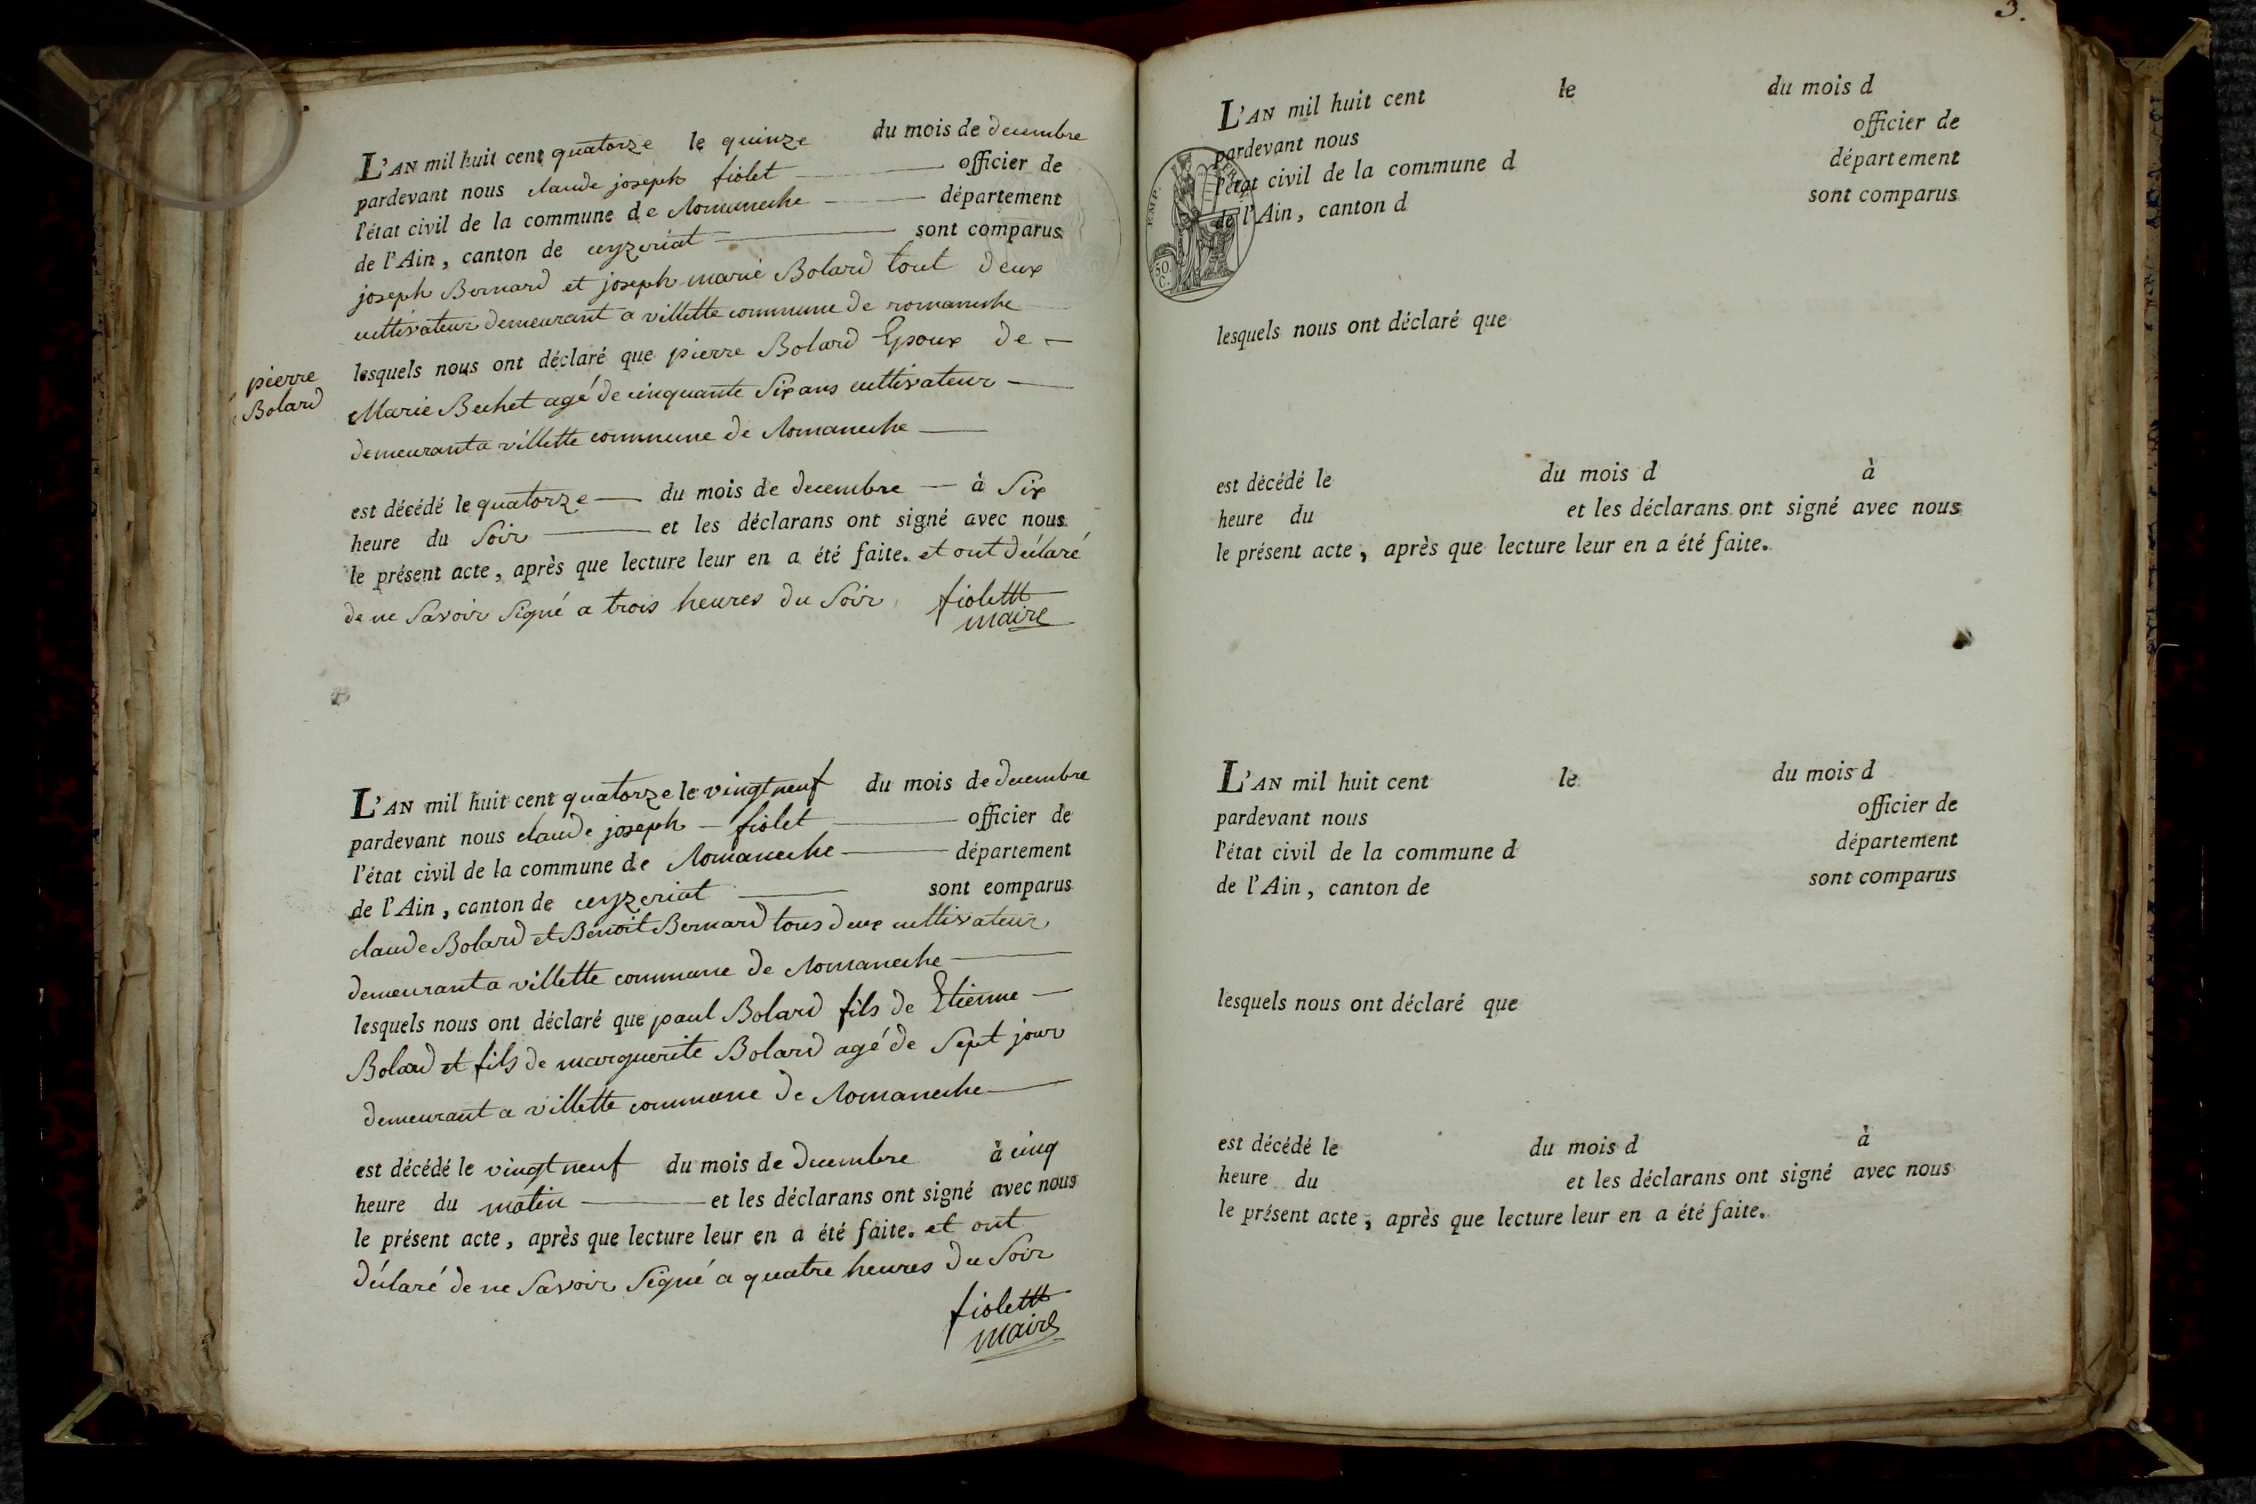 L'AN mil huit cent quatorze le quinze du mois de decembre
pardevant nous claude joseph fiolet officier de
l'état civil de la commune de Romaneche département
de l'Ain, canton de ceyzeriat sont comparus
joseph Bernard et joseph marie Bolard tout deux
cultivateur demeurant a villette commune de romaneche
lesquels nous ont déclaré que pierre Bolard Epoux de
pierre
Bolard
Marie Bechet agé de cinquante Six ans cultivateur
demeurant a villette commune de Romaneche
est décédé le quatorze du mois de decembre à Six
heure du Soir et les déclarans ont signé avec nous
le présent acte, après que lecture leur en a été faite. et ont déclaré
de ne Savoir Signé a trois heures du Soir
fiolettt
maire
L'AN mil huit cent quatorze le vingt neuf du mois de decembre
pardevant nous claude joseph fiolet officier de
l'état civil de la commune de Romaneche département
de l'Ain, canton de ceyzeriat sont comparus
claude Bolard et Benoit Bernard tous deux cultivateur
demeurant a villette commune de Romaneche
lesquels nous ont déclaré que paul Bolard fils de Etienne
Bolard et fils de marguerite Bolard agé de Sept jour
demeurant a villette commune de Romaneche
est décédé le vingt neuf du mois de decembre à cinq
heure du matin et les déclarans ont signé avec nous
le présent acte, après que lecture leur en a été faite. et ont
déclaré de ne Savoir Signé a quatre heures du Soir
fiolettt
maire
3.
L'AN mil huit cent le du mois d
pardevant nous officier de
l'état civil de la commune d département
de l'Ain, canton d sont comparus
EMP.
50
C.
lesquels nous ont déclaré que
est décédé le du mois d à
heure du et les déclarans ont signé avec nous
le présent acte, après que lecture leur en a été faite.
L'AN mil huit cent le du mois d
pardevant nous officier de
l'état civil de la commune d département
de l'Ain, canton de sont comparus
lesquels nous ont déclaré que
est décédé le du mois d à
heure du et les déclarans ont signé avec nous
le présent acte, après que lecture leur en a été faite.